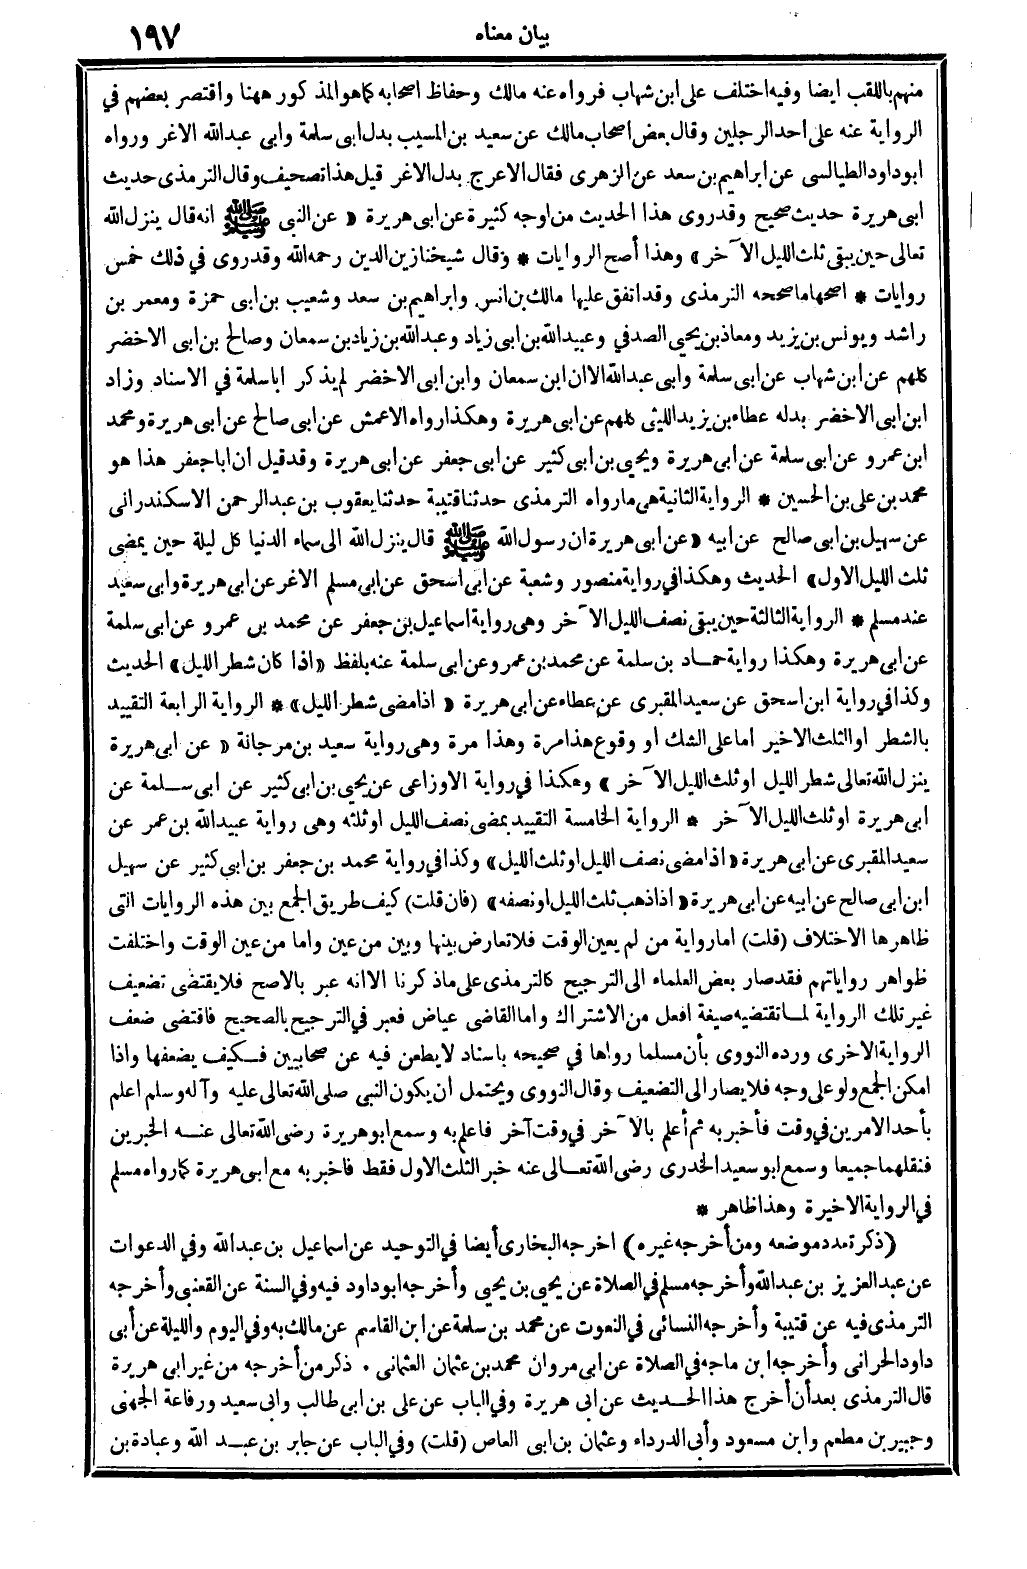 بيان معناه
١٩٧
منهم باللقب ايضا وفيه اختلف على ابن شهاب فرواه عنه مالك وحفاظ اصحابه كما هو المذكور ههنا واقتصر بعضهم في
الرواية عنه على احد الرجلين وقال بعض اصحاب مالك عن سعيد بن المسيب بدل ابى سلمة وابى عبدالله الاغر ورواه
ابو داود الطيالسى عن ابراهيم بن سعد عن الزهرى فقال الاعرج بدل الاغر قيل هذا تصحيف وقال الترمذى حديث
ابى هريرة حديث صحيح وقد روى هذا الحديث من اوجه كثيرة عن ابى هريرة « عن النبى ﷺ انه قال ينزل الله
تعالى حين يبقى ثلث الليل الآخر » وهذا أصح الروايات * وقال شيخنا زين الدين رحمه الله وقد روى في ذلك خمس
روايات * اصحها ما صححه الترمذى وقد اتفق عليها مالك بن انس وابراهيم بن سعد وشعيب بن ابى حمزة ومعمر بن
راشد ويونس بن يزيد ومعاذ بن يحيى الصدفي وعبيدالله بن ابى زياد وعبدالله بن زياد بن سمعان وصالح بن ابى الاخضر
كلهم عن ابن شهاب عن ابى سلمة وابى عبدالله الا ان ابن سمعان وابن ابى الاخضر لم يذكر ابا سلمة في الاسناد وزاد
ابن ابى الاخضر بدله عطاء بن يزيد الليثى كلهم عن ابى هريرة وهكذا رواه الاعمش عن ابى صالح عن ابى هريرة ومحمد
ابن عمرو عن ابى سلمة عن ابى هريرة ويحيى بن ابى كثير عن ابى جعفر عن ابى هريرة وقد قيل ان ابا جعفر هذا هو
محمد بن على بن الحسين * الرواية الثانية هى ما رواه الترمذى حدثنا قتيبة حدثنا يعقوب بن عبدالرحمن الاسكندرانى
عن سهيل بن ابى صالح عن ابيه « عن ابى هريرة ان رسول الله ﷺ قال ينزل الله الى سماء الدنيا كل ليلة حين يمضى
ثلث الليل الاول » الحديث وهكذا في رواية منصور وشعبة عن ابى اسحق عن ابى مسلم الاغر عن ابى هريرة وابى سعيد
عند مسلم * الرواية الثالثة حين يبقى نصف الليل الآخر وهى رواية اسماعيل بن جعفر عن محمد بن عمرو عن ابى سلمة
عن ابى هريرة وهكذا رواية حماد بن سلمة عن محمد بن عمرو عن ابى سلمة عنه بلفظ « اذا كان شطر الليل » الحديث
وكذا في رواية ابن اسحق عن سعيد المقبرى عن عطاء عن ابى هريرة « اذا مضى شطر الليل » * الرواية الرابعة التقييد
بالشطر او الثلث الاخير اما على الشك او وقوع هذا مرة وهذا مرة وهى رواية سعيد بن مرجانة « عن ابى هريرة
ينزل الله تعالى شطر الليل او ثلث الليل الآخر » وهكذا في رواية الاوزاعى عن يحيى بن ابى كثير عن ابى سلمة عن
ابى هريرة او ثلث الليل الآخر * الرواية الخامسة التقييد بمضى نصف الليل او ثلثه وهى رواية عبيدالله بن عمر عن
سعيد المقبرى عن ابى هريرة « اذا مضى نصف الليل او ثلث الليل » وكذا في رواية محمد بن جعفر بن ابى كثير عن سهيل
ابن ابى صالح عن ابيه عن ابى هريرة « اذا ذهب ثلث الليل او نصفه » (فان قلت) كيف طريق الجمع بين هذه الروايات التى
ظاهرها الاختلاف (قلت) اما رواية من لم يعين الوقت فلا تعارض بينها وبين من عين واما من عين الوقت واختلفت
ظواهر رواياتهم فقد صار بعض العلماء الى الترجيح كالترمذى على ما ذكرنا الا انه عبر بالاصح فلا يقتضى تضعيف
غير تلك الرواية لما تقتضيه صيغة افعل من الاشتراك واما القاضى عياض فعبر في الترجيح بالصحيح فاقتضى ضعف
الرواية الاخرى ورده النووى بأن مسلما رواها في صحيحه باسناد لا يطعن فيه عن صحابيين فكيف يضعفها واذا
امكن الجمع ولو على وجه فلا يصار الى التضعيف وقال النووى ويحتمل أن يكون النبى صلى الله تعالى عليه وآله وسلم اعلم
بأحد الامرين في وقت فأخبر به ثم أعلم بالآخر في وقت آخر فاعلم به وسمع ابو هريرة رضى الله تعالى عنه الخبرين
فنقلهما جميعا وسمع ابو سعيد الخدرى رضى الله تعالى عنه خبر الثلث الاول فقط فاخبر به مع ابى هريرة كما رواه مسلم
في الرواية الاخيرة وهذا ظاهر *
(ذكر تعدد موضعه ومن أخرجه غيره) اخرجه البخارى أيضا في التوحيد عن اسماعيل بن عبدالله وفي الدعوات
عن عبدالعزيز بن عبدالله وأخرجه مسلم في الصلاة عن يحيى بن يحيى وأخرجه ابو داود فيه وفي السنة عن القعنبى وأخرجه
الترمذى فيه عن قتيبة وأخرجه النسائى في النعوت عن محمد بن سلمة عن ابن القاسم عن مالك به وفي اليوم والليلة عن أبى
داود الحرانى وأخرجه ابن ماجه في الصلاة عن ابى مروان محمد بن عثمان العثمانى . ذكر من أخرجه من غير ابى هريرة
قال الترمذى بعد أن أخرج هذا الحديث عن ابى هريرة وفي الباب عن على بن ابى طالب وابى سعيد ورفاعة الجهنى
وجبير بن مطعم وابن مسعود وأبى الدرداء وعثمان بن ابى العاص (قلت) وفي الباب عن جابر بن عبد الله وعبادة بن